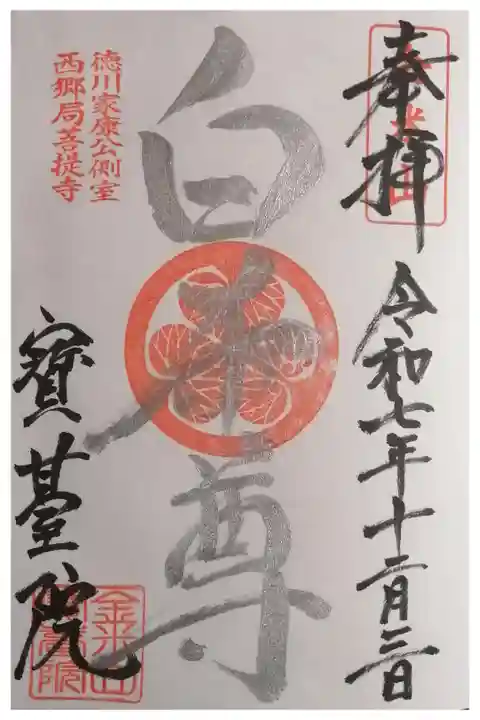 奉拝
令和七年十二月三日
金米山
白本尊
徳川家康公側室
西郷局菩提寺
寶臺院
金米山
寶臺院